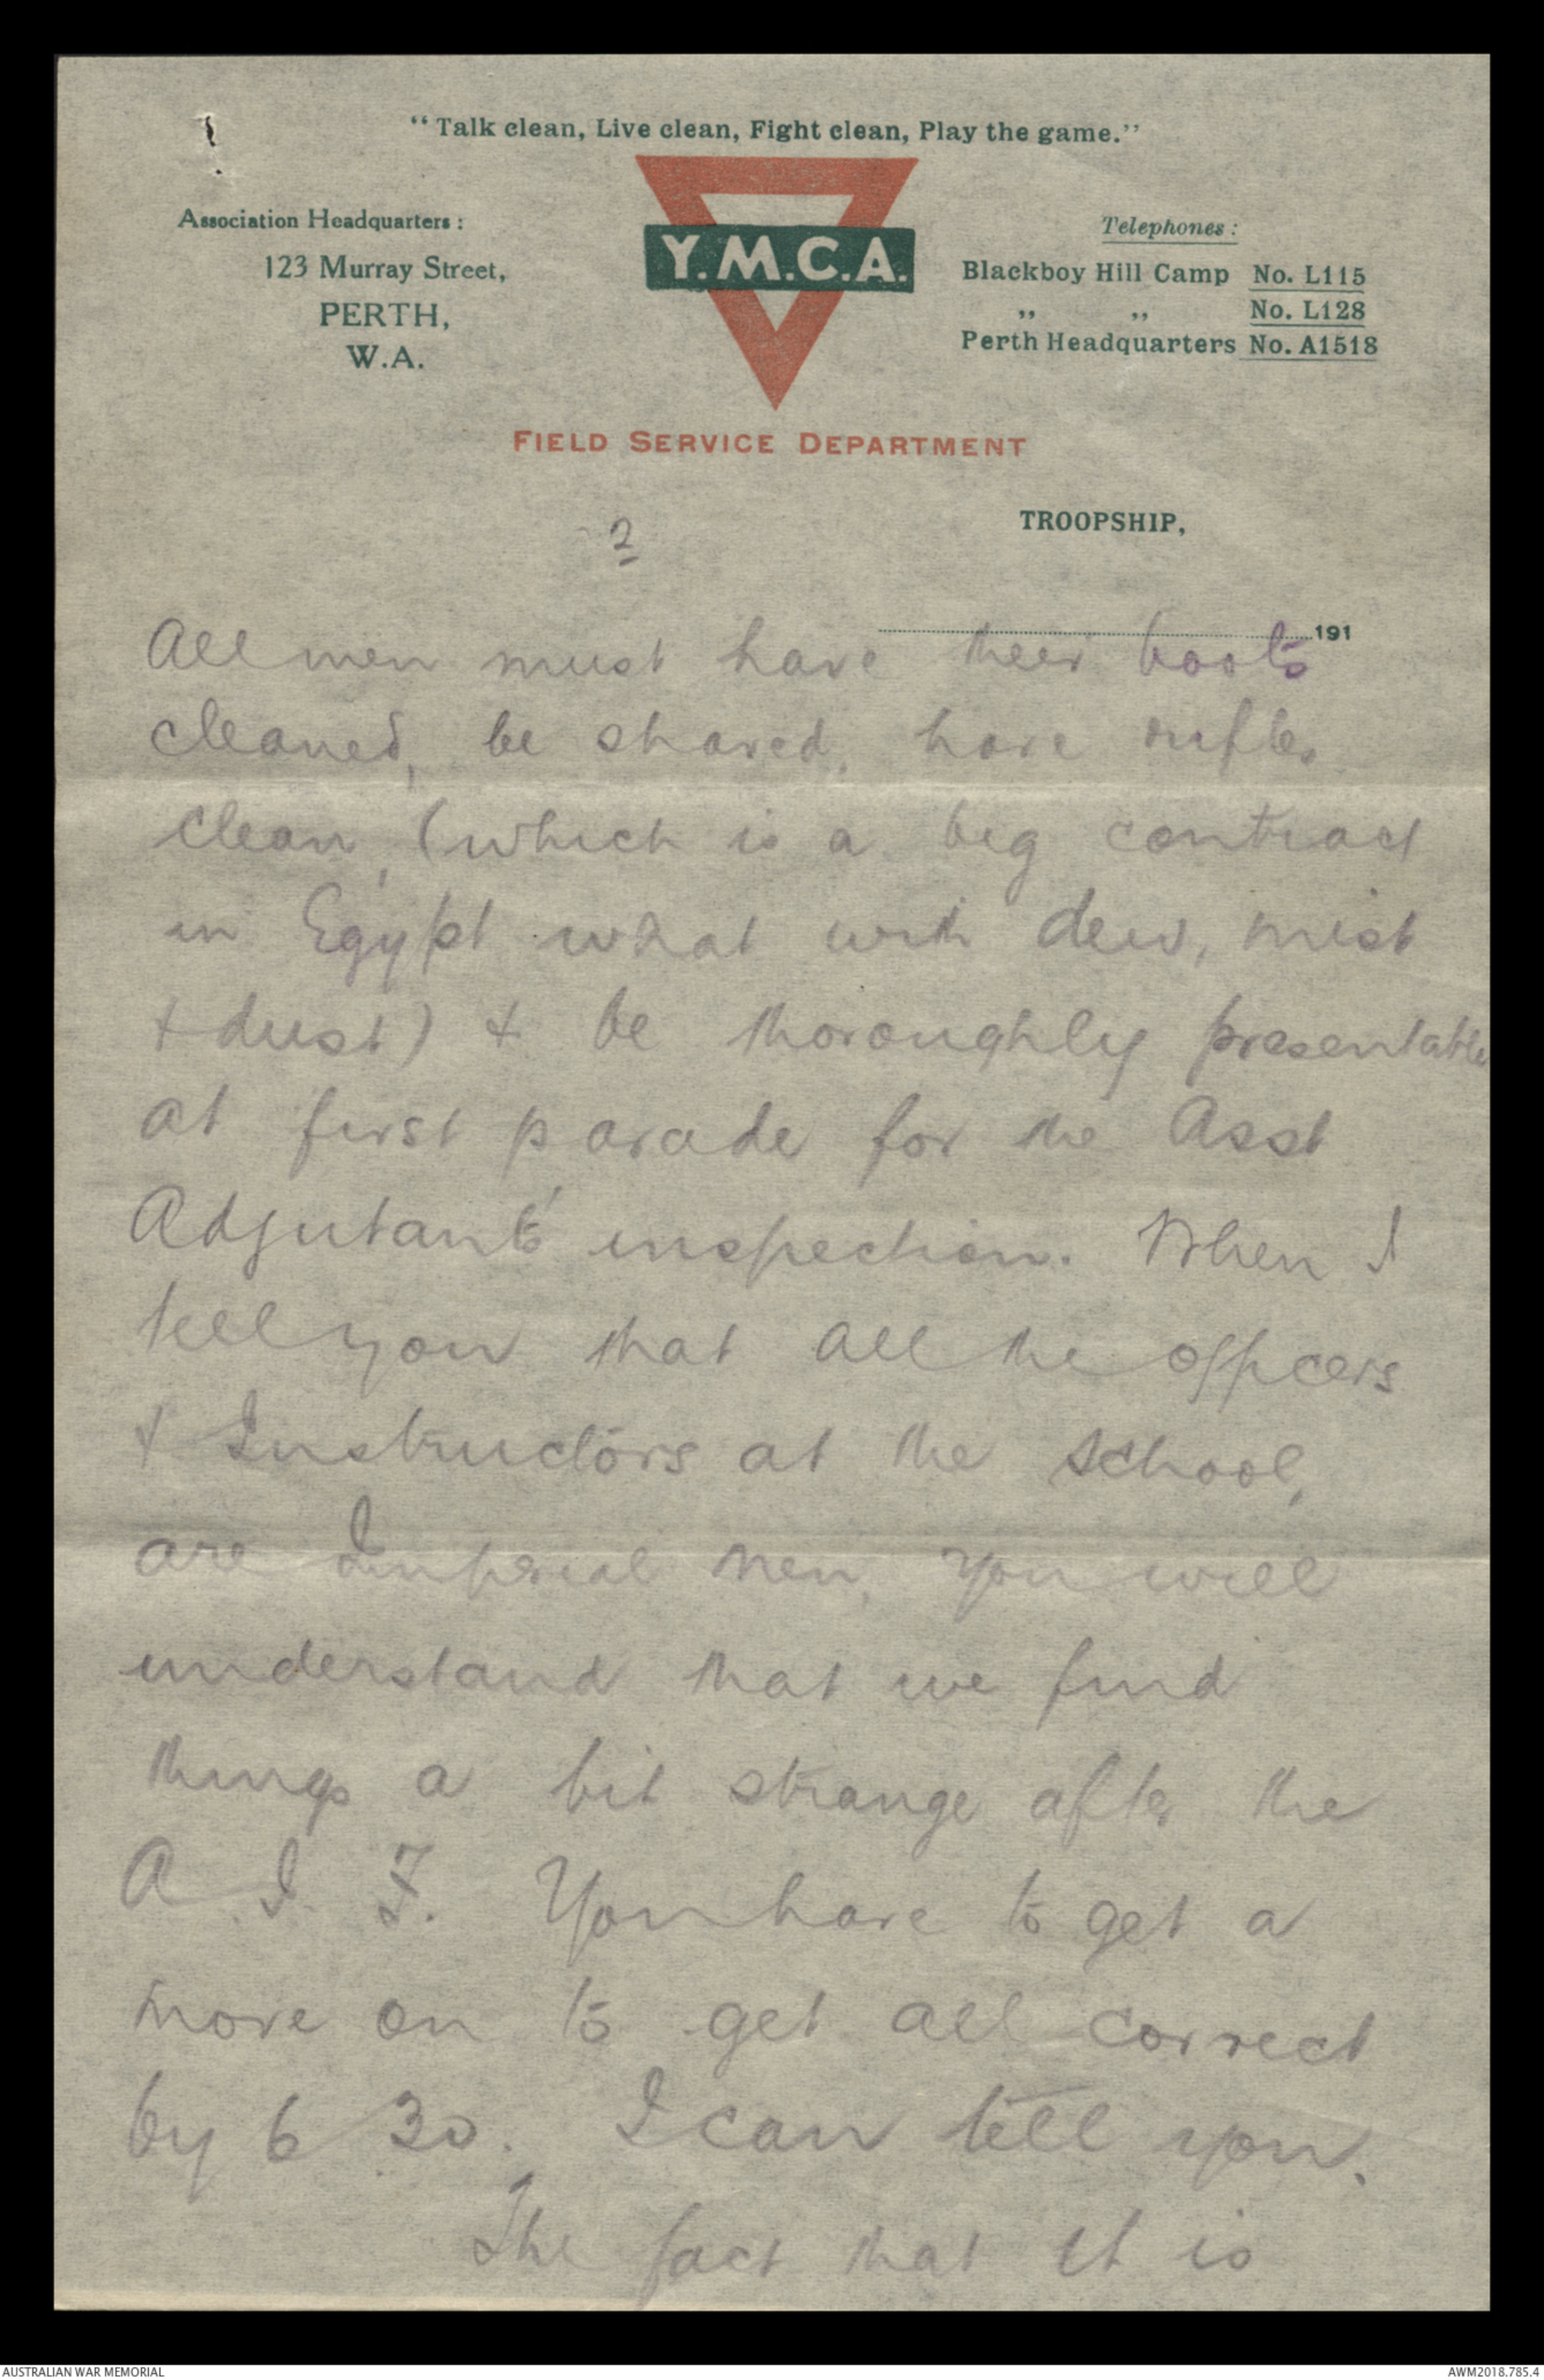 “Talk clean, Live clean, Fight clean, Play the game.”
Association Headquarters :
123 Murray Street,
PERTH,
W.A.
Y.M.C.A.
Telephones :
Blackboy Hill Camp No. L115
„ „ No. L128
Perth Headquarters No. A1518
FIELD SERVICE DEPARTMENT
2
TROOPSHIP,
191
All men must have their boots
cleaned, be shaved, have rifles
clean, (which is a big contract
in Egypt what with dew, mist
+ dust) + be thoroughly presentable
at first parade for the Asst
Adjutant's inspection. When I
tell you that all the officers
+ Instructors at the school,
are Imperial men, you will
understand that we find
things a bit strange after the
A.I.F. You have to get a
move on to get all correct
by 6 30. I can tell you.
The fact that it is
AUSTRALIAN WAR MEMORIAL
AWM2018.785.4